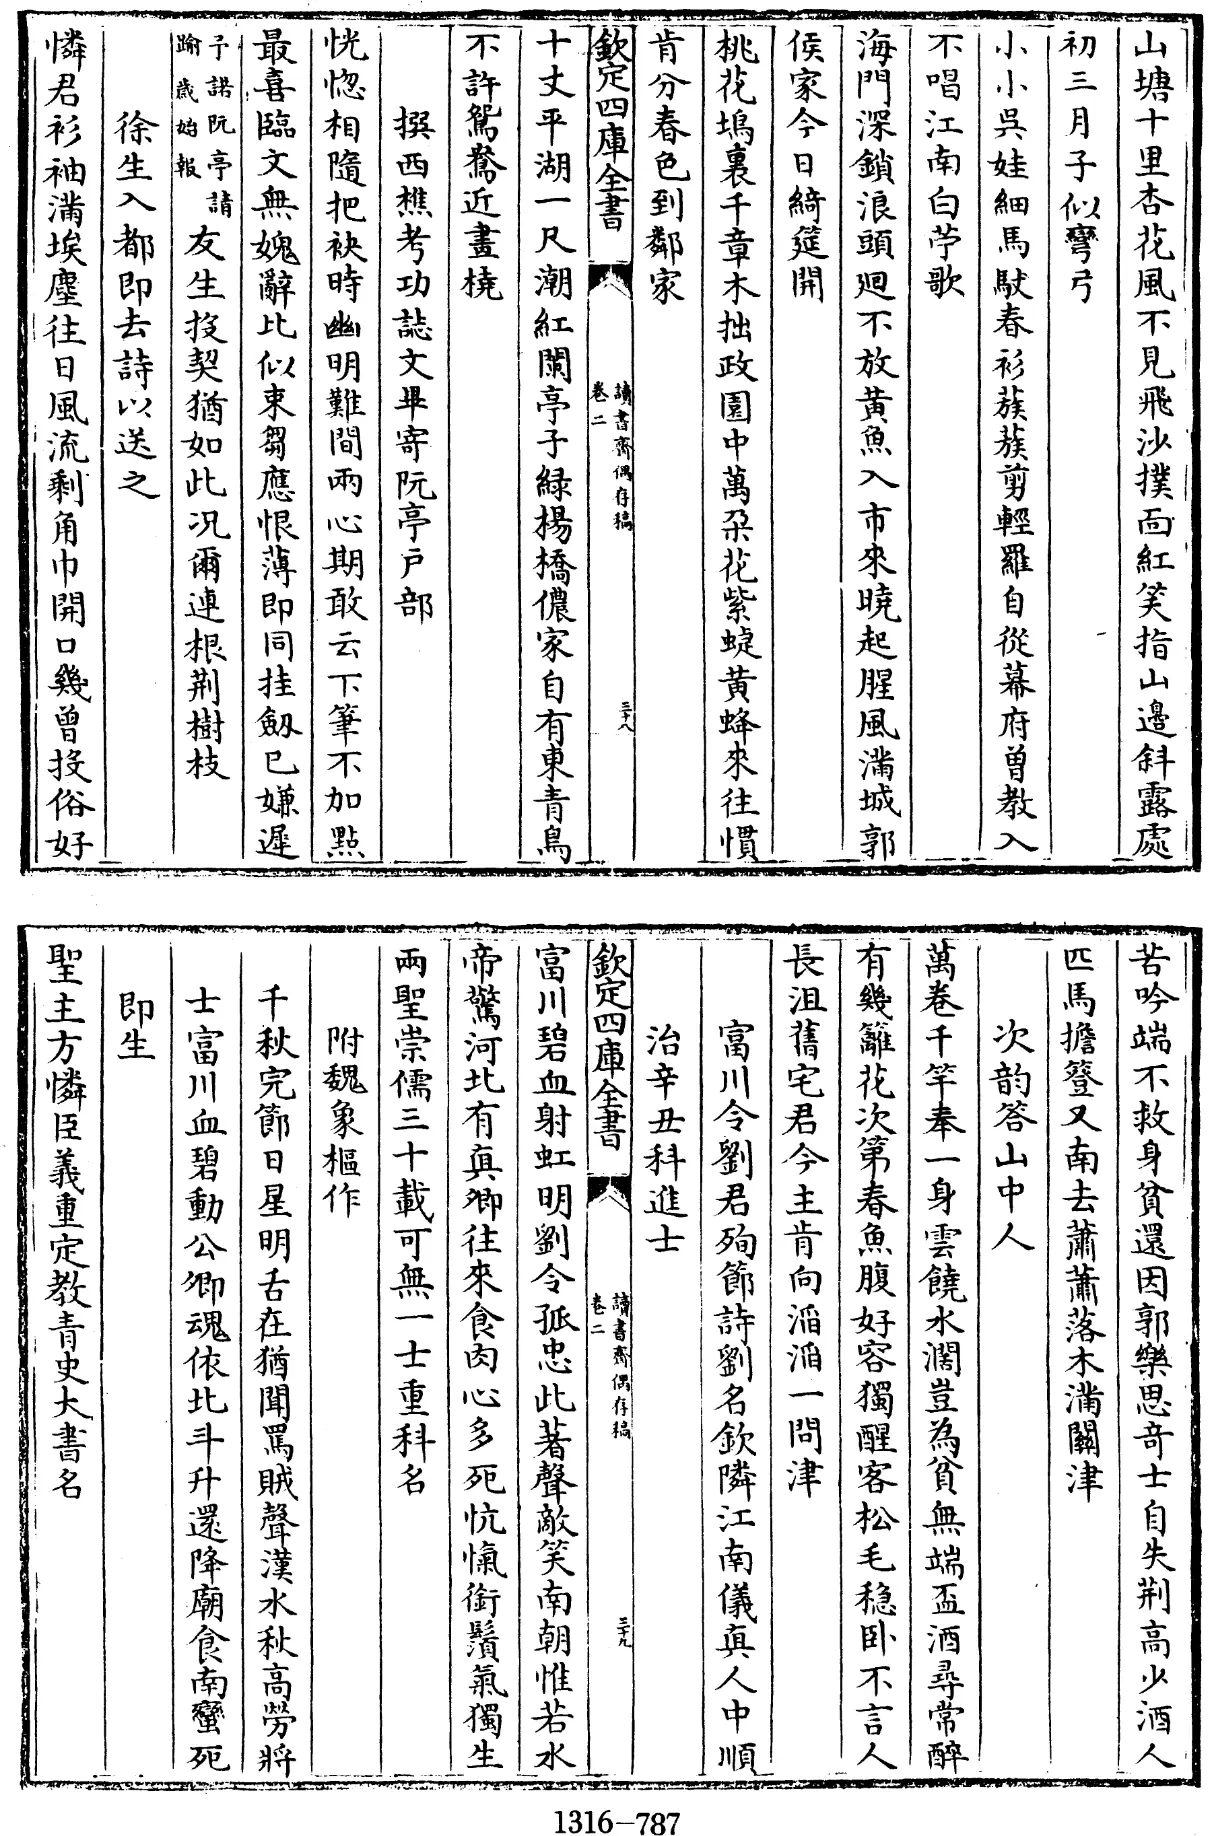 山塘十里杏花風不見飛沙撲面紅笑指山邉斜露處
初三月子似彎弓
小小吳娃細馬馱春衫蔟蔟剪輕羅自從幕府曾教入
不唱江南白苧歌
海門深鎖浪頭廻不放黄魚入市來曉起腥風滿城郭
侯家今日綺筵開
桃花塢裏千章木拙政園中萬朶花紫蜨黄蜂來往慣
肯分春色到鄰家
欽定四庫全書
讀書齋偶存稿
卷二
三十八
十丈平湖一尺潮紅闌亭子緑楊橋儂家自有東青鳥
不許鴛鴦近畫橈
撰西樵考功誌文畢寄阮亭户部
恍惚相隨把袂時幽明難間兩心期敢云下筆不加點
最喜臨文無媿辭比似束芻應恨薄即同挂劔已嫌遲
予諾阮亭請
踰歲始報
友生投契猶如此况爾連根荆樹枝
徐生入都即去詩以送之
憐君衫袖滿埃塵往日風流剩角巾開口幾曾投俗好
苦吟端不救身貧還因郭樂思奇士自失荆高少酒人
匹馬擔簦又南去蕭蕭落木滿關津
次韵答山中人
萬卷千竿奉一身雲饒水濶豈為貧無端盃酒尋常醉
有幾籬花次第春魚腹好容獨醒客松毛穏卧不言人
長沮舊宅君今主肯向滔滔一問津
富川令劉君殉節詩劉名欽隣江南儀真人中順
治辛丑科進士
欽定四庫全書
讀書齋偶存稿
卷二
三十九
富川碧血射虹明劉令孤忠此著聲敵笑南朝惟若水
帝驚河北有真卿往來食肉心多死忼愾銜鬚氣獨生
兩聖崇儒三十載可無一士重科名
附魏象樞作
千秋完節日星明舌在猶聞罵賊聲漢水秋高勞將
士富川血碧動公卿魂依北斗升還降廟食南蠻死
即生
聖主方憐臣義重定教青史大書名
1316-787